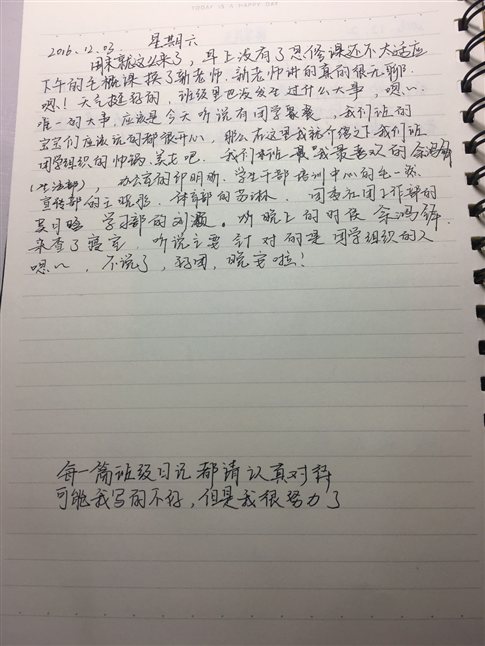 TODAY IS A HAPPY DAY
2016.12.03 星期六
周末就这么来了，早上没有了思修课还不太适应
下午的毛概课换了新老师，新老师讲的真的很无聊。
嗯！天气挺好的，班级里也没发生过什么大事，嗯、、
唯一的大事，应该是今天听说有团学聚餐，我们班的
宝宝们应该玩的都很开心，那么在这里我就介绍下我们班
团学组织的帅锅、美女吧。我们班最我最喜欢的余鸿
(生活部)，办公室的邱明，学生干部培训中心的毛一
宣传部的王晓，体育部的苏沐，团委社团工作部的
夏月，学习部的刘。听晚上的时候余鸿
来查了寝室，听说主要针对的是团学组织的人
嗯、、，不说了，好困，晚安啦！
每一篇班级日记都请认真对待
可能我写的不好，但是我很努力了